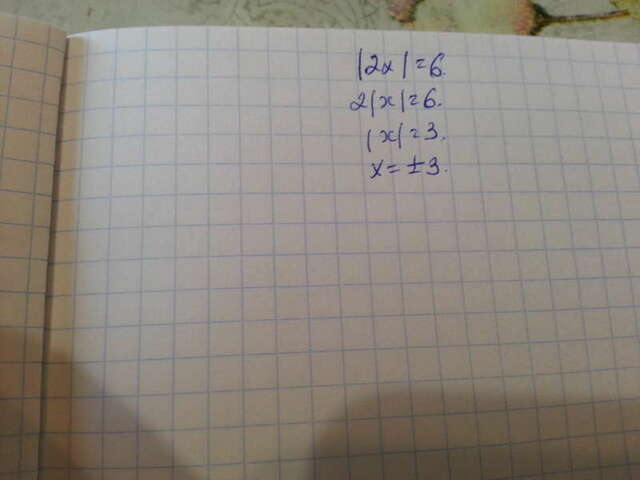 |2x|=6.
2|x|=6.
|x|=3.
x=±3.